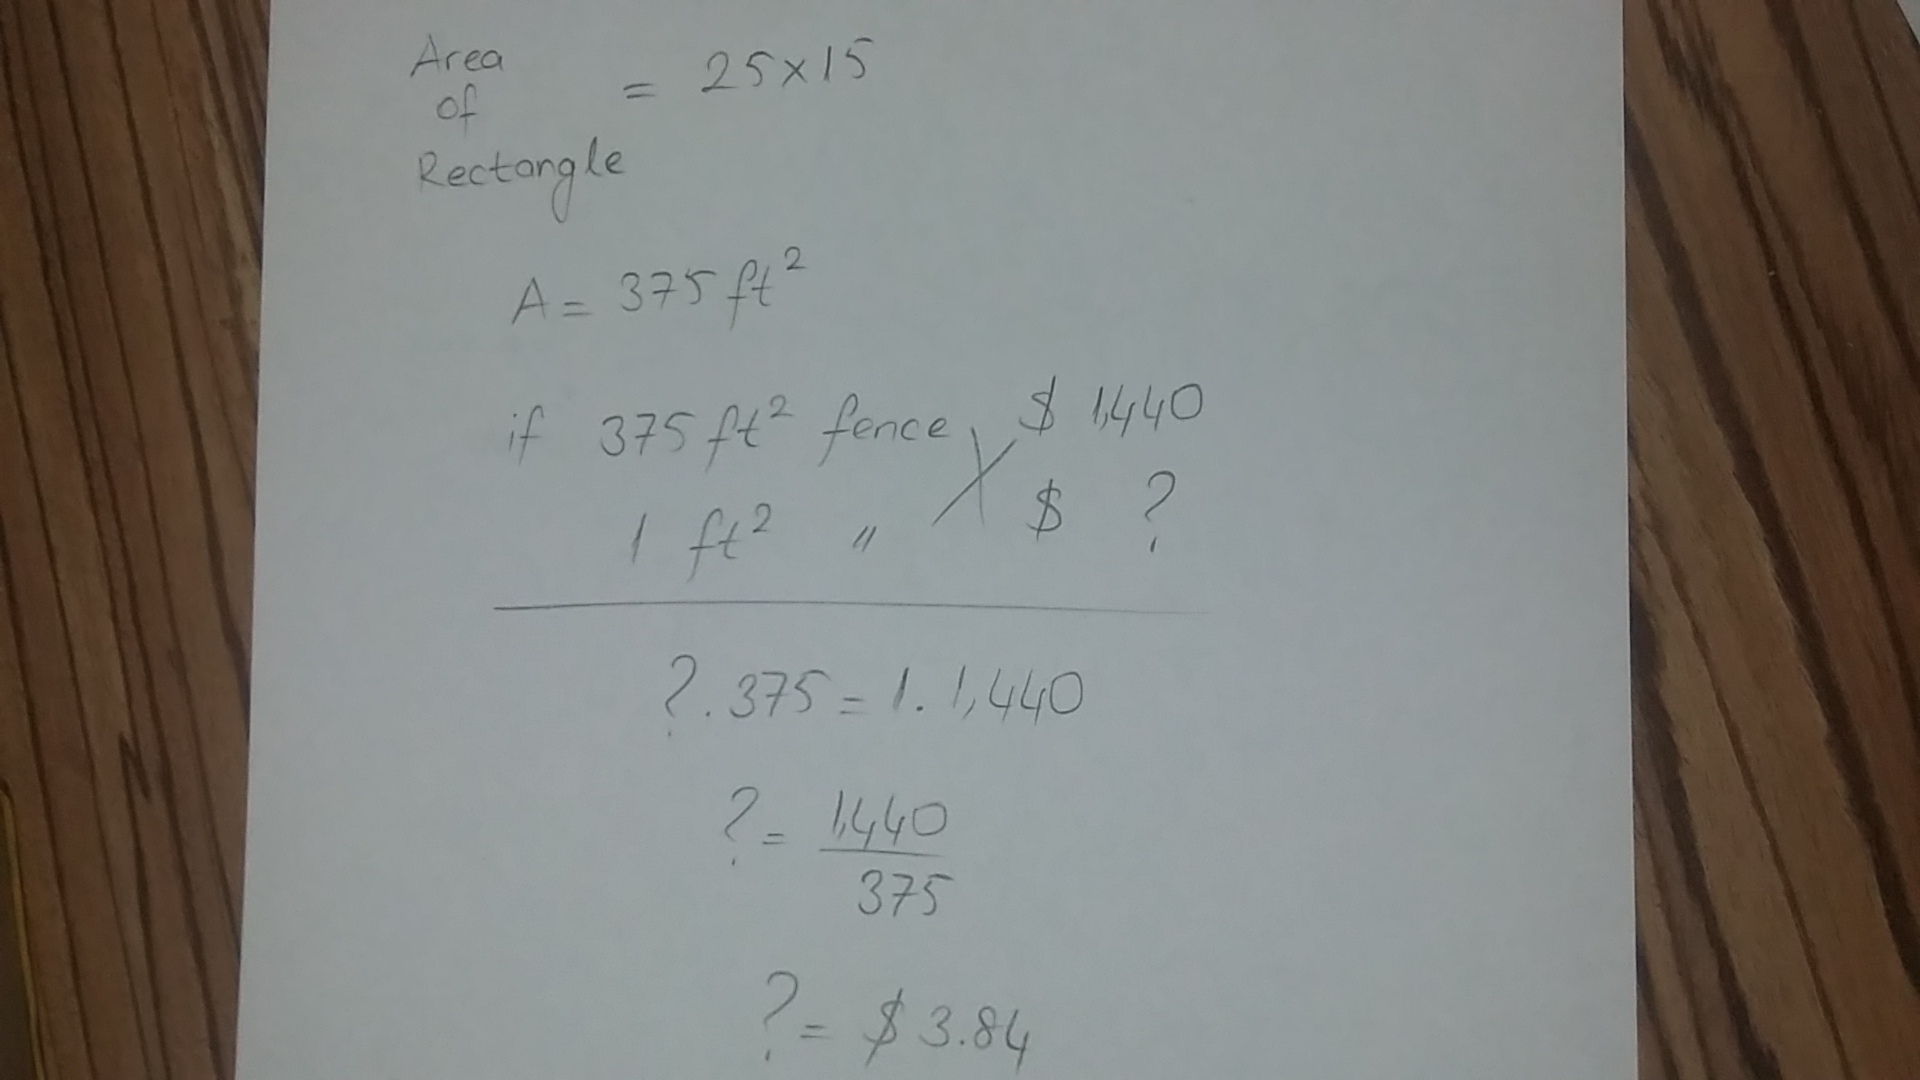 Area
of
Rectangle
= 25×15
A = 375 ft²
if 375 ft² fence $ 1,440
1 ft² " $ ?
? . 375 = 1 . 1,440
? = 1,440
375
? = $ 3.84